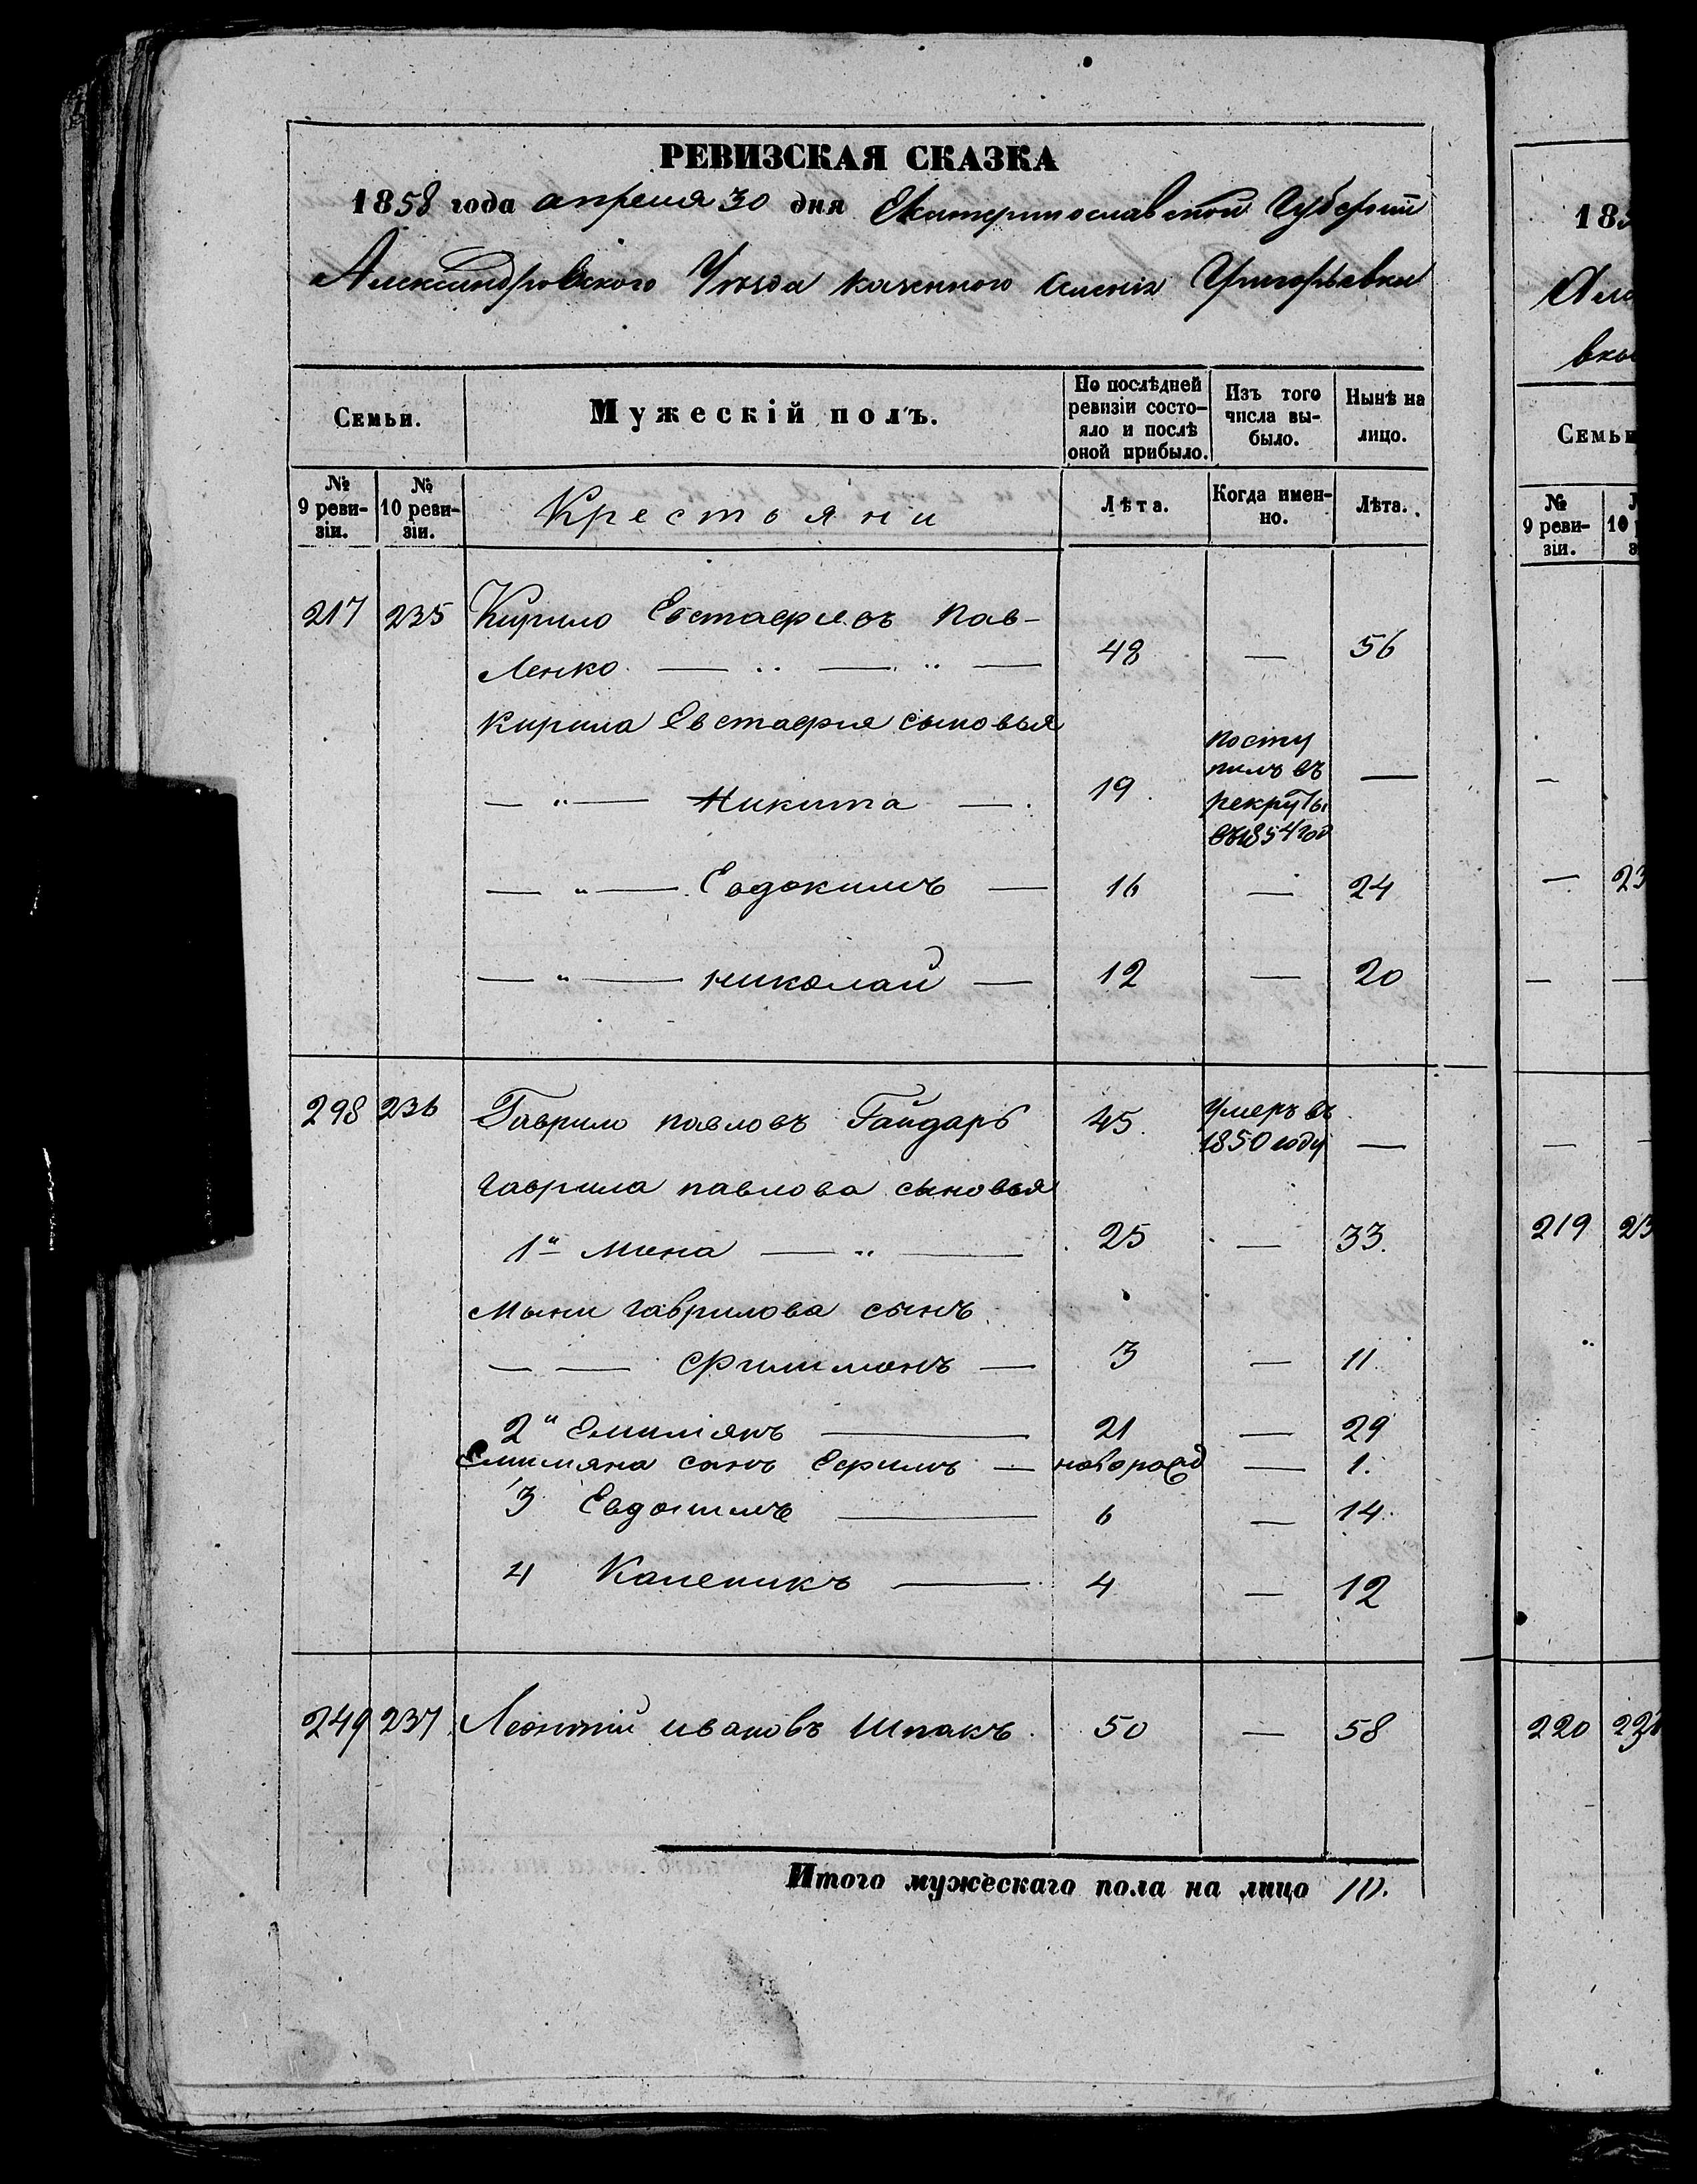 РЕВИЗСКАЯ СКАЗКА
1858 года апреля 30 дня Екатеринославской Губерніи
Александровского Уѣзда казенного селенія Григорьевки
Семьи.
Мужескій полъ.
По послѣдней ревизіи состояло и послѣ оной прибыло.
Изъ того числа выбыло.
Нынѣ на лицо.
№ 9 ревизіи.
№ 10 ревизіи.
Крестьяни
Лѣта.
Когда именно.
Лѣта.
217 235 Кирило Евстафиевъ Пав-
Ленко — „ — „ — 48 — 56
Кирила Евстафия сыновья
— „ — Никита — 19 посту
пилъ въ
рекруты
въ 1854 год —
— „ — Евдокимъ — 16 — 24
— „ — николай — 12 — 20
298 236 Гаврило павловъ Гайдаръ 45 умеръ въ
1850 году —
гаврила павлова сыновья
1й Мина — „ — 25 — 33.
Мыни гаврилова сынъ
— — Филимонъ — 3 — 11
2й Емилiянъ — 21 — 29
Емиляна сынъ Ефимъ — новорожд — 1.
3 Евдокимъ — 6 — 14
4 Каленикъ — 4 — 12
249 237 Леонтій ивановъ Шпакъ 50 — 58
Итого мужескаго пола на лицо 10.
185
Але
вкы
Семьи
№ 9 ревизіи.
— 23
219 23
220